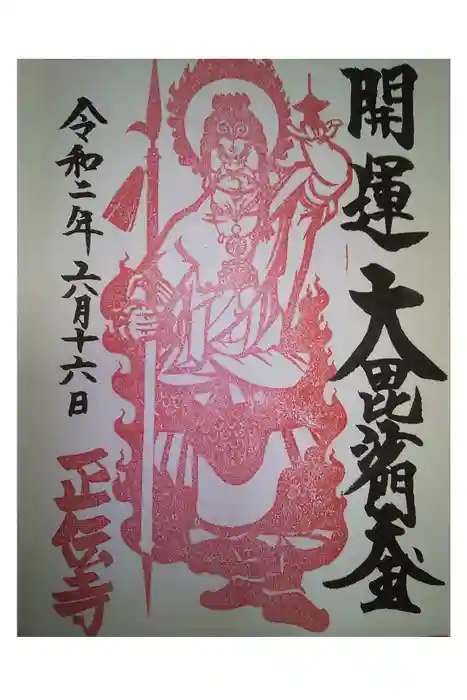 開運 大毘沙門天王
令和二年六月十六日
正伝寺